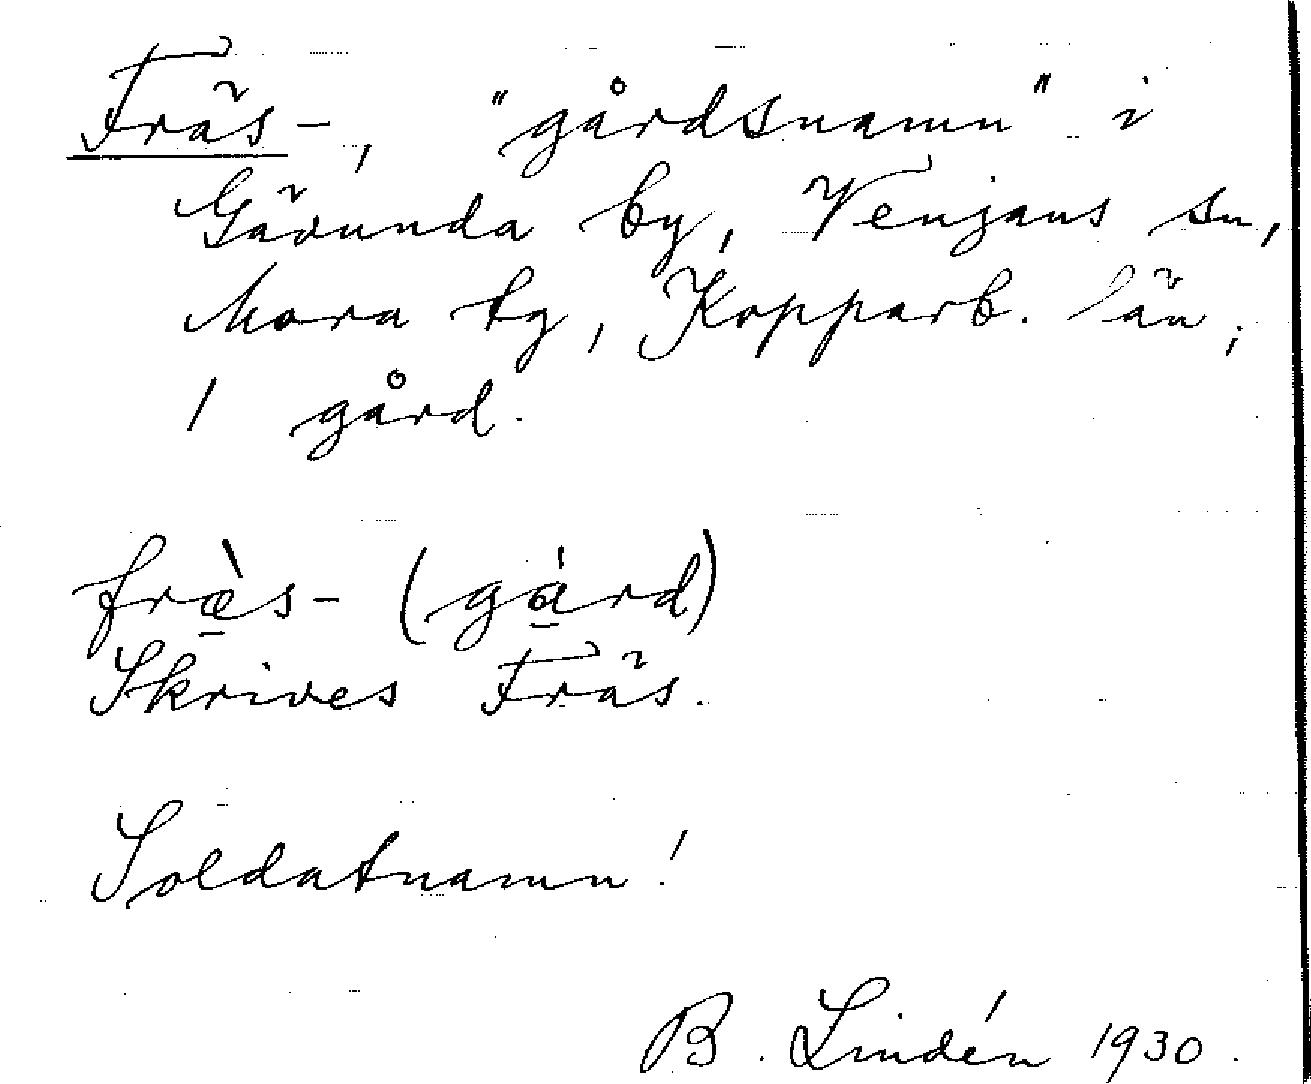 Fräs-, "gårdsnamn" i
Gävunda by, Venjans sn,
Mora tg, Kopparb. län;
1 gård.
fræ̀s- (gá̱rd)
Skrives Fräs.
Soldatnamn!
B. Lindén 1930.